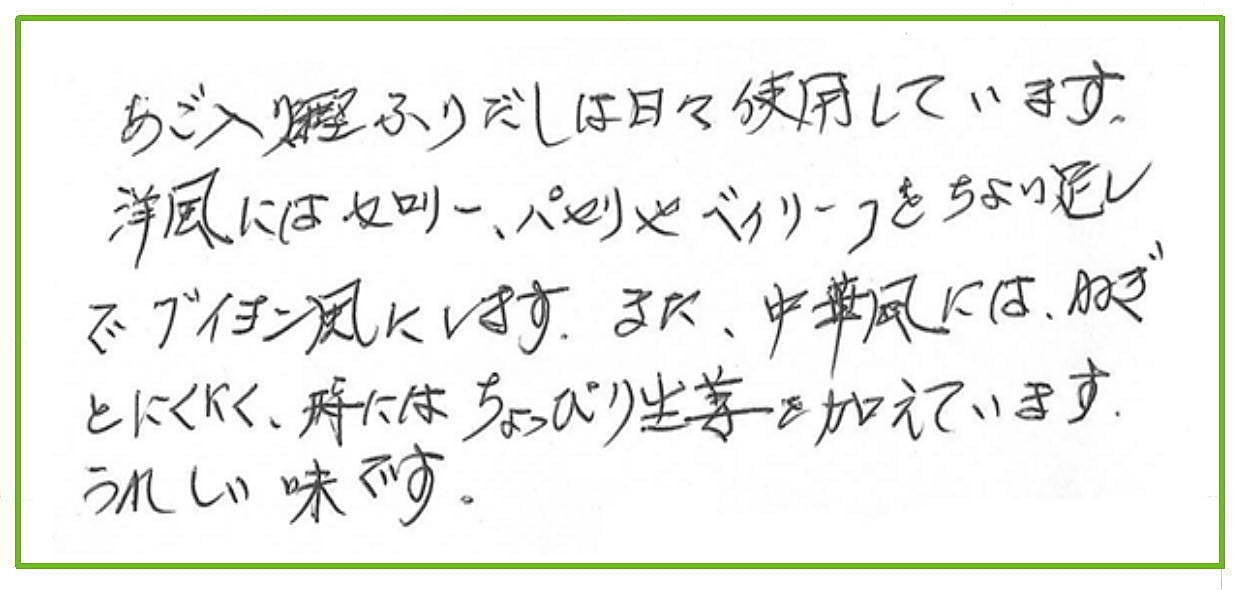 あご入り鰹ふりだしは日々使用しています。
洋風にはセロリー、パセリやベイリーフをちょい足し
でブイヨン風にします。また、中華風には、ねぎ
とにくにく、時にはちょっぴり生姜を加えています。
うれしい味です。